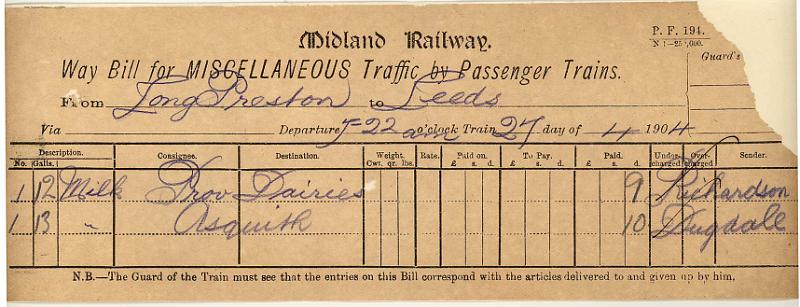 P. F. 194.
Midland Railway.
Way Bill for MISCELLANEOUS Traffic by Passenger Trains.
Guard's
From Long Preston to Leeds
Via Departure 7-22 am o'clock Train 27 day of 4 1904
No. Description. Galls. Consignee. Destination. Weight. Cwt. qr. lbs. Rate. Paid on. £ s. d. To Pay. £ s. d. Paid. £ s. d. Under-charged Over-charged Sender.
1 12 Milk Prov Dairies 9 Richardson
1 13 " Asquith 10 Dugdale
N.B.—The Guard of the Train must see that the entries on this Bill correspond with the articles delivered to and given up by him,